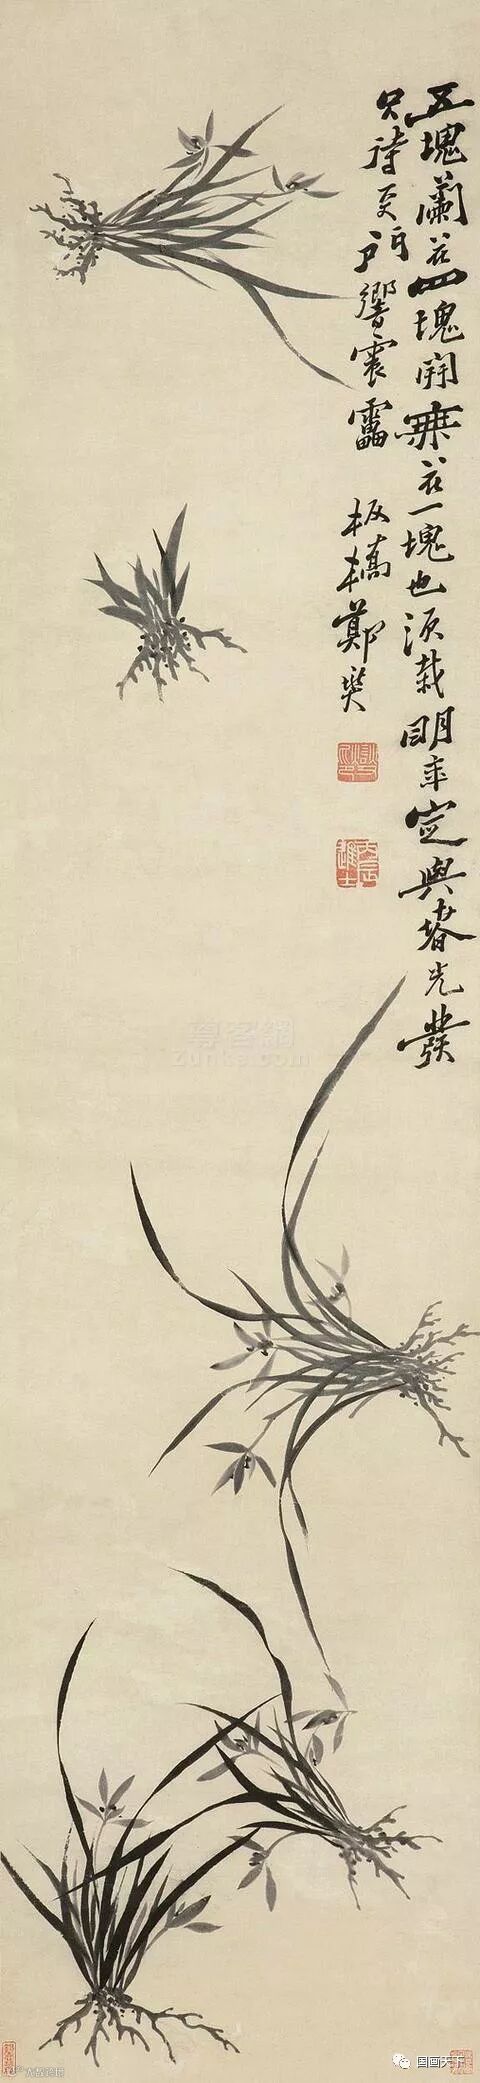 五塊蘭花四塊開無花一塊也須栽明年定與春光發
只待天門響震靁
板橋鄭燮
丙辰進士
尊客網
Zunke.com
国画天下